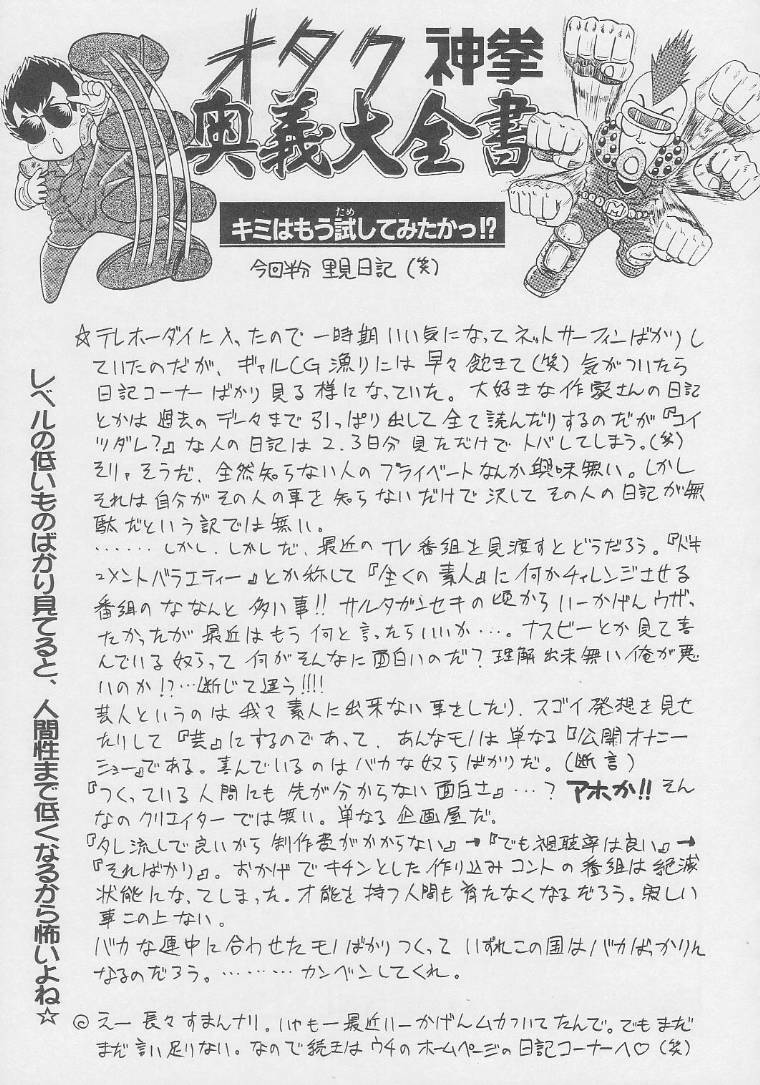 オタク神拳
奥義大全書
キミはもう試してみたかっ!?
ため
今回半分 里見日記(笑)
☆テレホーダイに入ったので一時期いい気になってネットサーフィンばかりし
ていたのだが、ギャルCG漁りには早々飽きて(笑)気がついたら
日記コーナーばかり見る様になっていた。大好きな作家さんの日記
とかは過去のデータまで引っぱり出して全て読んだりするのだが『コイ
ツダレ?』な人の日記は2.3日分見ただけでトバしてしまう。(笑)
そりゃそうだ、全然知らない人のプライベートなんか興味無い。しかし
それは自分がその人の事を知らないだけで決してその人の日記が無
駄だという訳では無い。
……しかし、しかしだ、最近のTV番組を見渡すとどうだろう。『ドキ
ュメントバラエティー』とか称して『全くの素人』に何かチャレンジさせる
番組のななんと多い事!!サルガンセキの頃からいーかげんウザ
たかったが最近はもう何と言ったらいいか…。ナスビーとか見て喜
んでいる奴らって何がそんなに面白いのだ?理解出来無い俺が悪
いのか!?…断じて違う!!!!
芸人というのは我々素人に出来ない事をしたり、スゴイ発想を見せ
たりして『芸』にするのであって、あんなモノは単なる『公開オナニー
ショー』である。喜んでいるのはバカな奴らばかりだ。(断言)
『つくっている人間にも先が分からない面白さ』…?アホか!!そん
なのクリエイターでは無い。単なる企画屋だ。
『タレ流しで良いから制作費がかからない』→『でも視聴率は良い』→
『そればかり』。おかげでキチンとした作り込みコントの番組は絶滅
状態になってしまった。才能を持つ人間も育たなくなるだろう。寂しい
事この上ない。
バカな連中に合わせたモノばかりつくっていずれこの国はバカばっかりん
なるのだろう。………カンベンしてくれ。
◎えー長々すまんナリ。いやもー最近いーかげんムカついてたんで。でもまだ
まだ言い足りない。なので続きはウチのホームページの日記コーナーへ♡(笑)
レベルの低いものばかり見てると、人間性まで低くなるから怖いよね☆
M